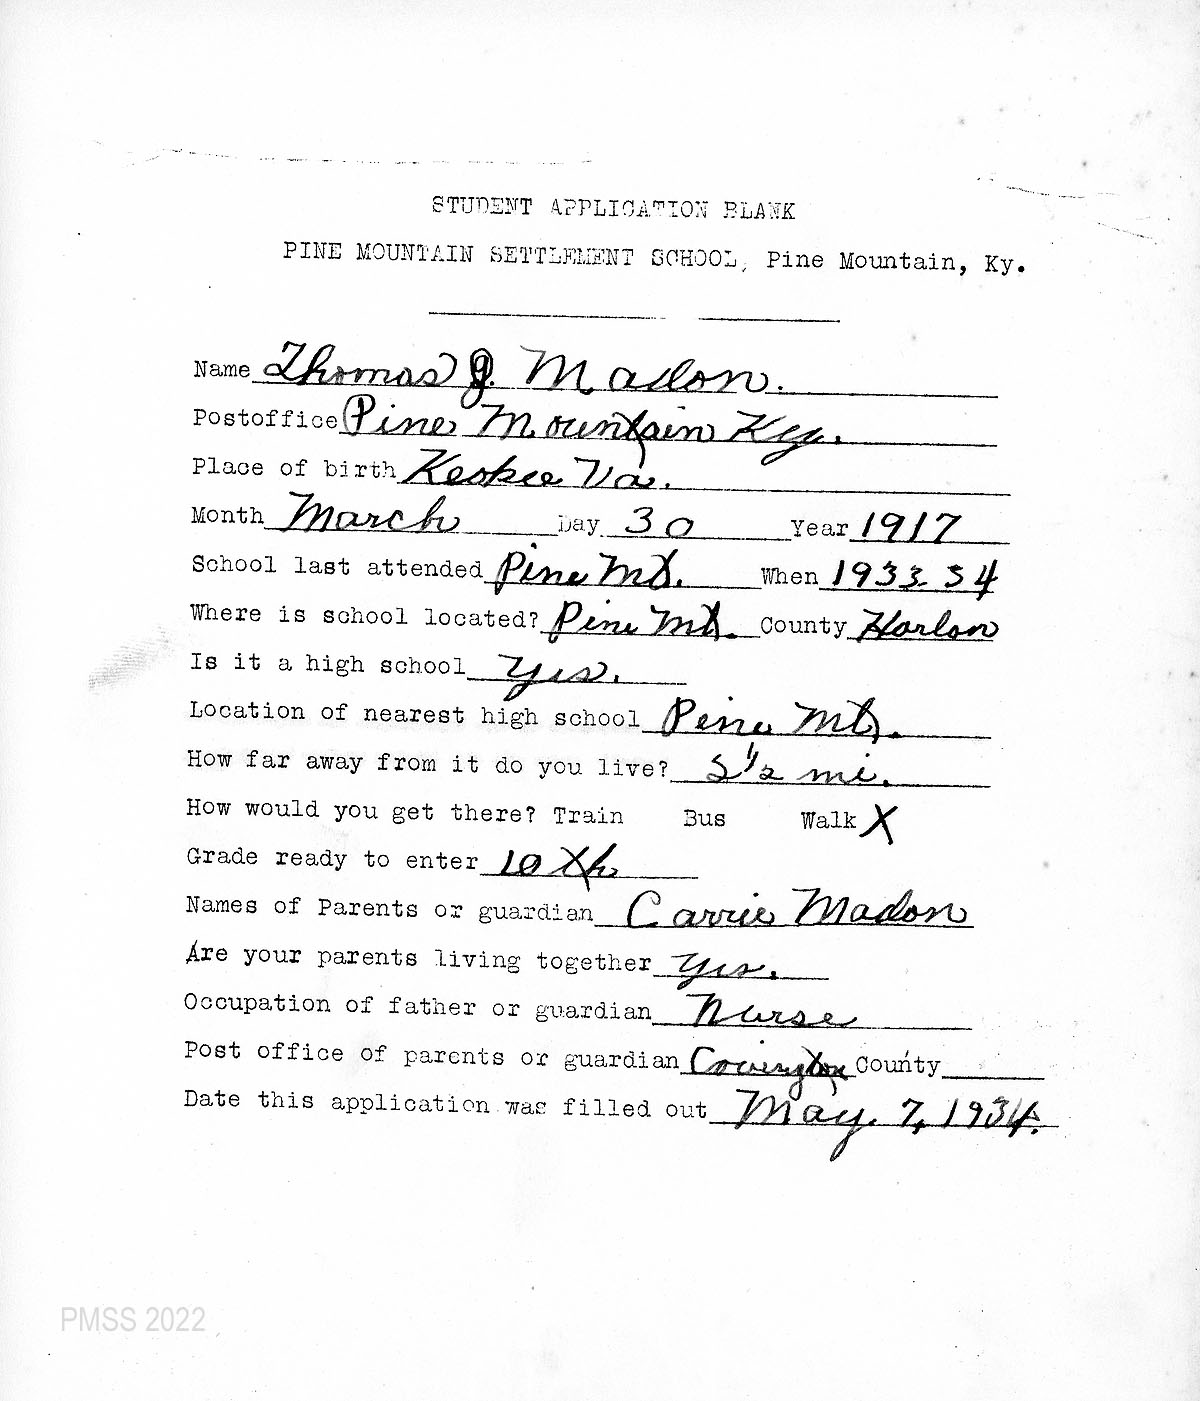 STUDENT APPLICATION BLANK
PINE MOUNTAIN SETTLEMENT SCHOOL, Pine Mountain, Ky.
Name Thomas J. Madon.
Postoffice Pine Mountain Ky.
Place of birth Keokee Va.
Month March Day 30 Year 1917
School last attended Pine Mt. When 1933-34
Where is school located? Pine Mt. County Harlan
Is it a high school Yes.
Location of nearest high school Pine Mt.
How far away from it do you live? 2 1/2 mi.
How would you get there? Train Bus Walk X
Grade ready to enter 10th
Names of Parents or guardian Carrie Madon
Are your parents living together Yes.
Occupation of father or guardian Nurse
Post office of parents or guardian Covington County
Date this application was filled out May. 7, 1934.
PMSS 2022